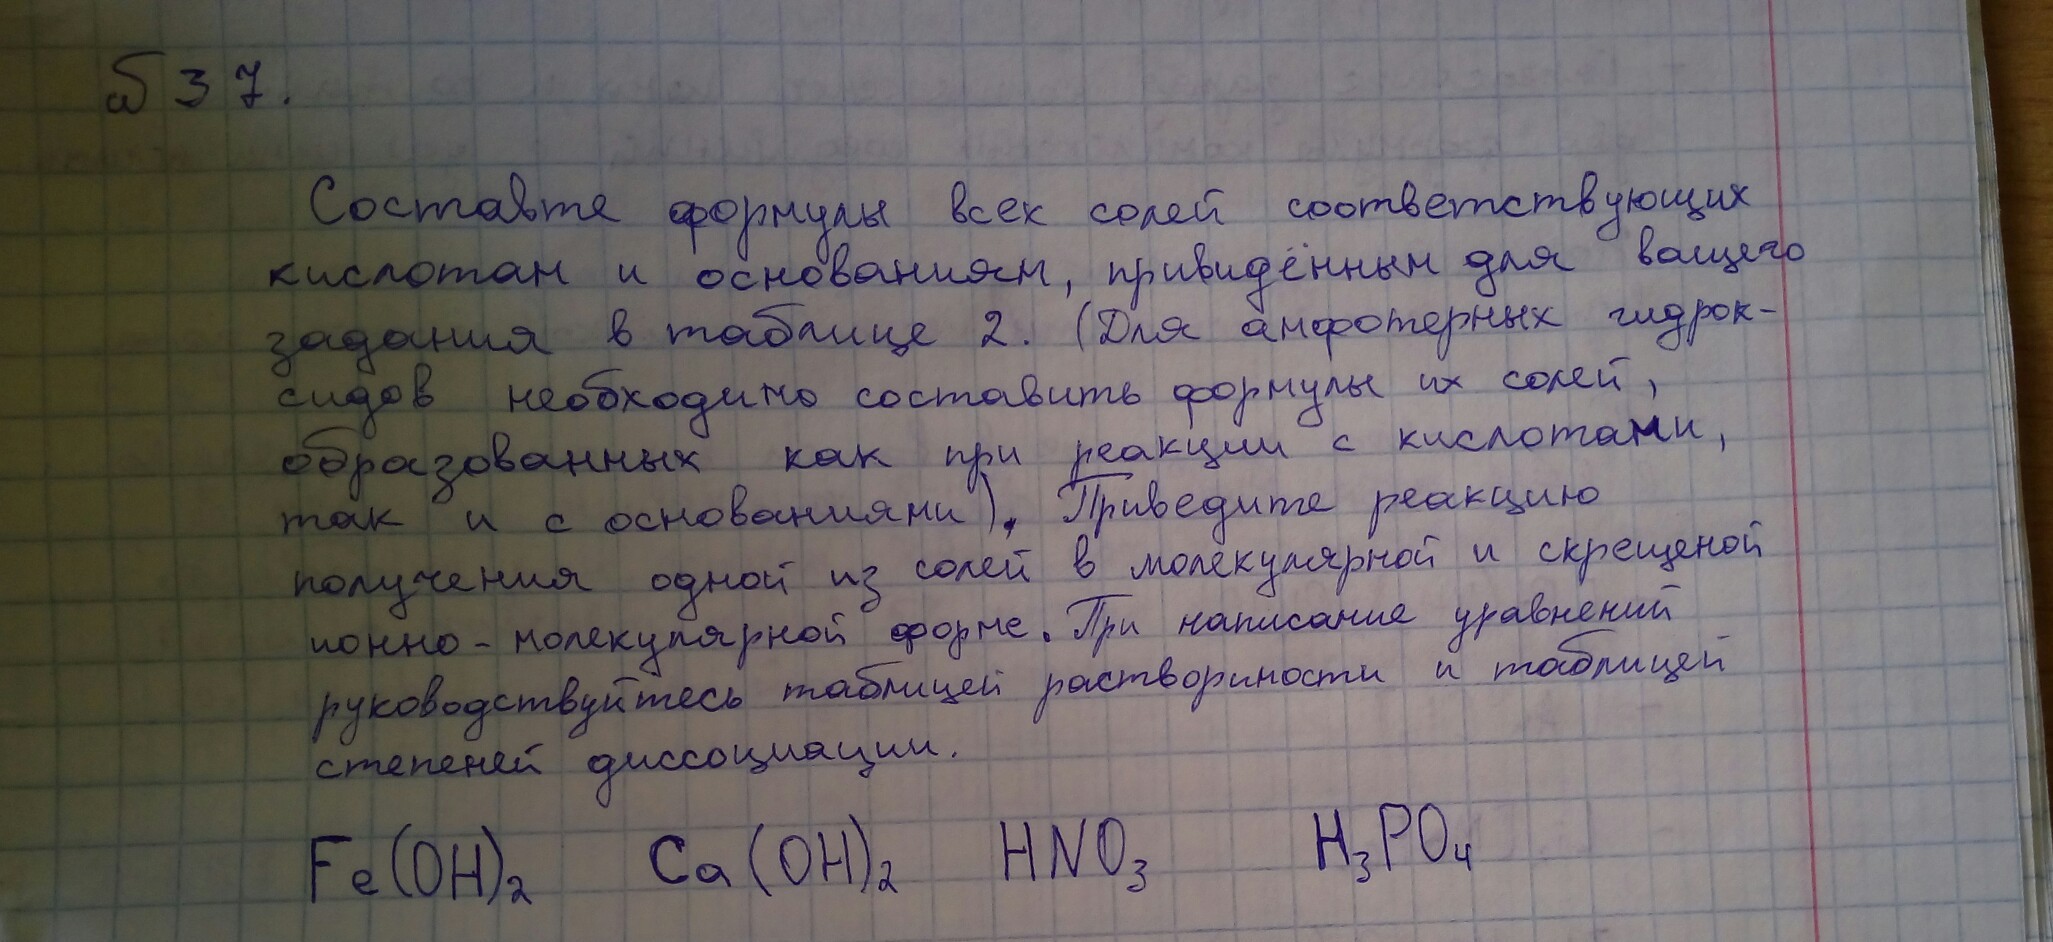 № 37.
Составте формулы всех солей соответствующих
кислотам и основаниям, привидённым для ващего
задания в таблице 2. (Для амфотерных гидрок-
сидов необходимо составить формулы их солей,
образованных как при реакции с кислотами,
так и с основаниями). Приведите реакцию
получения одной из солей в молекулярной и скрещеной
ионно-молекулярной форме. При написание уравнений
руководствуйтесь таблицей растворимости и таблицей
степеней диссоциации.
Fe(OH)₂ Ca(OH)₂ HNO₃ H₃PO₄